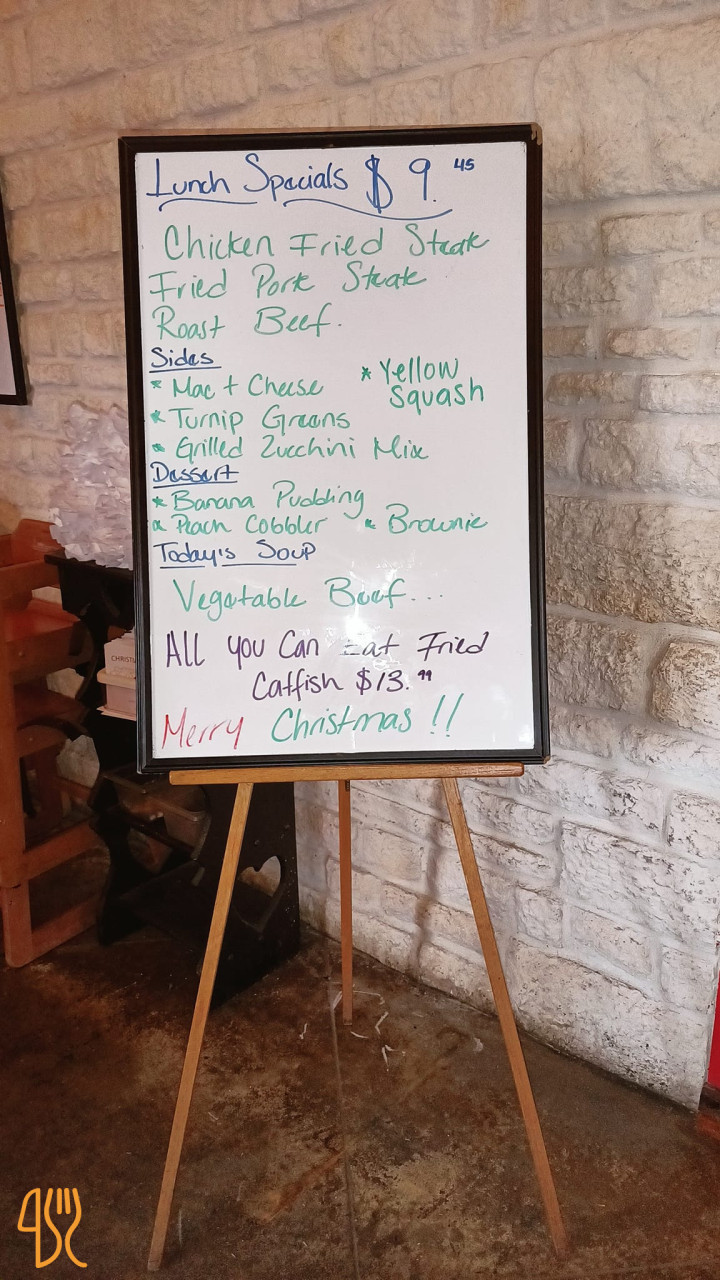 Lunch Specials $9.45
Chicken Fried Steak
Fried Pork Steak
Roast Beef.
Sides
* Mac + Cheese * Yellow Squash
* Turnip Greens
* Grilled Zucchini Mix
Dessert
* Banana Pudding
* Peach Cobbler * Brownie
Today's Soup
Vegetable Beef...
All you Can Eat Fried
Catfish $13.99
Merry Christmas !!